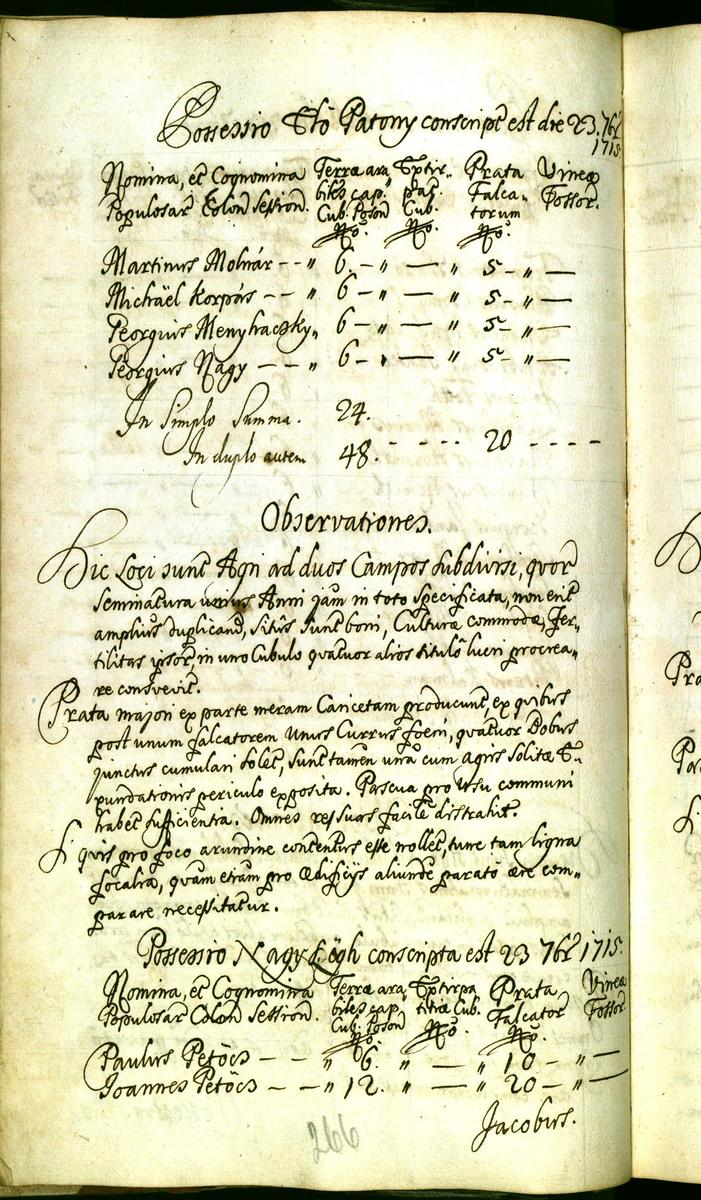 Possessio Elő Patony conscript est die 23. 7br
1715
Nomina, et Cognomina Terræ ara„ Extir„ Prata Vineæ
Populosar Colon Session. biles cap. pat. Falca„ Fossor.
Cub. Poson Cub. torum
No. No. No.
Martinus Molnár - - „ 6. - „ — „ 5 - „ —
Michäel Korpás - - „ 6 - „ — „ 5 - „ —
Georgius Menyhaczky„ 6 - „ — „ 5 - „ —
Georgius Nagy - - „ 6 - „ — „ 5 - „ —
In Simplo Summa. 24.
In duplo autem 48. - - - - 20 - - - -
Observationes.
Hic Loci sunt Agri ad duos Campos subdivisi, quor
seminatura unius Anni jam in toto specificata, non erit
amplius duplicand, situs sunt boni, Culturæ commodæ, Fer„
tilitas ipsor, in uno Cubulo quatuor alios titulô lucri procrea„
re consvevit.
Prata majori ex parte meram Caricetam producunt, ex quibus
post unum falcatorem Unus Currus foeni, quatuor Bobus
junctus cumulari solet, sunt tamen unâ cum agris solitæ E„
xundationis periculo exposita. Pascua pro Usu communi
habet sufficientia. Omnes res suas facile distrahit.
Si quis pro foco arundine contentus esse nollet, tunc tam ligna
focalia, quàm etiam pro Ædificijs aliunde paratô ære com„
parare necessitatur.
Possessio Nagy Légh conscripta est 23 7br 1715.
Nomina, et Cognomina Terræ ara„ Extirpa Prata Vineæ
Populosar Colon Session. biles cap titiæ Cub. Falcator Fossor
Cub. Poson No. No.
No.
Paulus Petöcs - - „ 6. „ — „ 10 - „ —
Joannes Petöcs - - „ 12. „ — „ 20 - „ —
Jacobus.
266